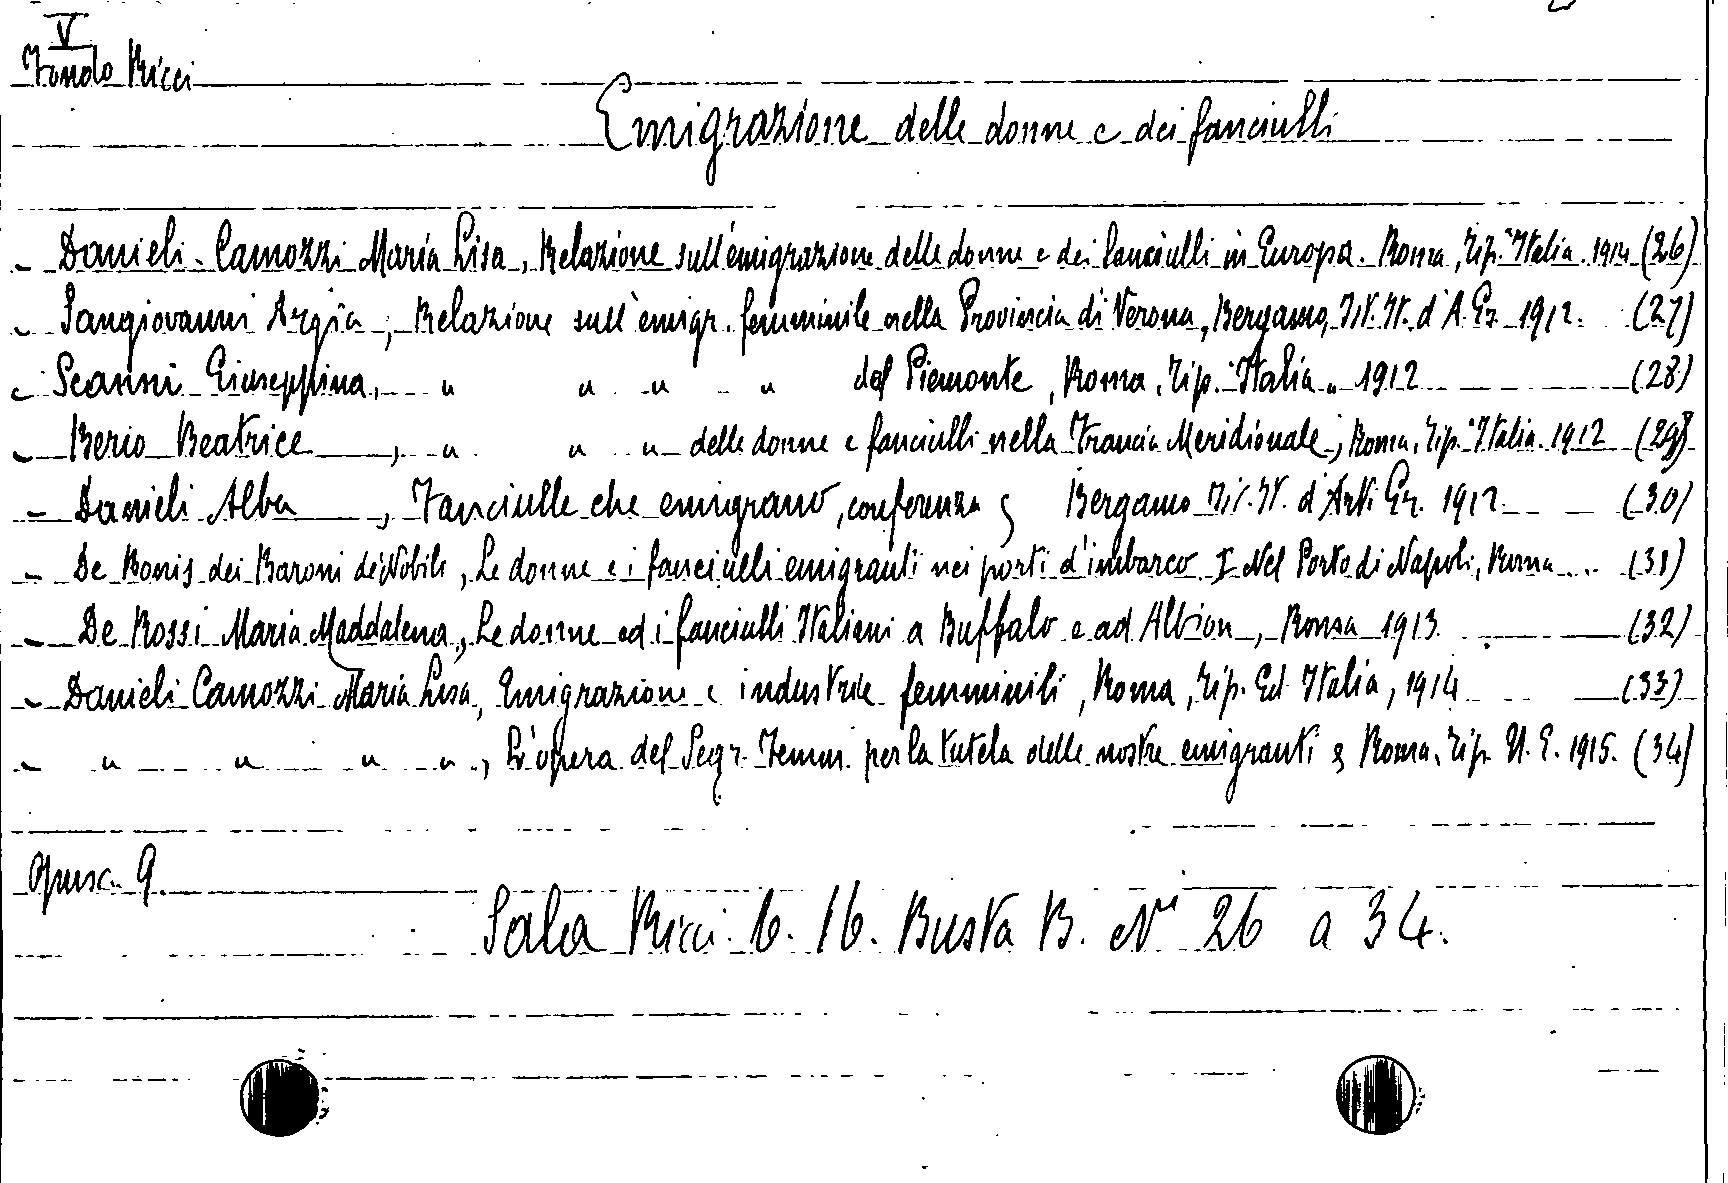 V
Fondo Ricci
Emigrazione delle donne e dei fanciulli
- Danieli-Camozzi Maria Lisa, Relazione sull'emigrazione delle donne e dei fanciulli in Europa. Roma, Tip. "Italia. 1914 (26)
- Sangiovanni Argìa, Relazione sull'emigr. femminile nella Provincia di Verona, Bergamo, d'A. Gr. 1912. (27)
- Scanni Giuseppina, " " " " del Piemonte, Roma, Tip. "Italia" 1912 (28)
- Berio Beatrice, " " " delle donne e fanciulli nella Francia Meridionale, Roma, Tip. "Italia. 1912 (29)
- Danieli Alba, Fanciulle che emigrano, conferenza; Bergamo d'Arti Gr. 1912 (30)
- De Bonis dei Baroni de' Nobili, Le donne e i fanciulli emigranti nei porti d'imbarco I Nel Porto di Napoli, Roma ... (31)
- De Rossi Maria Maddalena, Le donne ed i fanciulli Italiani a Buffalo e ad Albion, Roma 1913 (32)
- Danieli Camozzi Maria Lisa, Emigrazione e industrie femminili, Roma, Tip. Ed. Italia, 1914 (33)
- " " " ", L'opera del Segr. Femm. per la tutela delle nostre emigranti Roma, Tip. U. E. 1915. (34)
Opusc. 9.
Sala Ricci. 6. 16. Busta B. Nri 26 a 34.